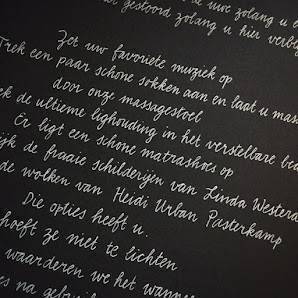 de uwe zolang u
gestoord zolang u hier verb
Zet uw favoriete muziek op
Trek een paar schone sokken aan en laat u mass
door onze massagestoel
ek de ultieme lighouding in het verstelbare bed
Er ligt een schone matrashoes op
ijk de fraaie schilderijen van Linda Westerd
de wolken van Heidi Urban Pasterkamp
Die opties heeft u.
hoeft ze niet te lichten
waarderen we het wannee
es na gebruik